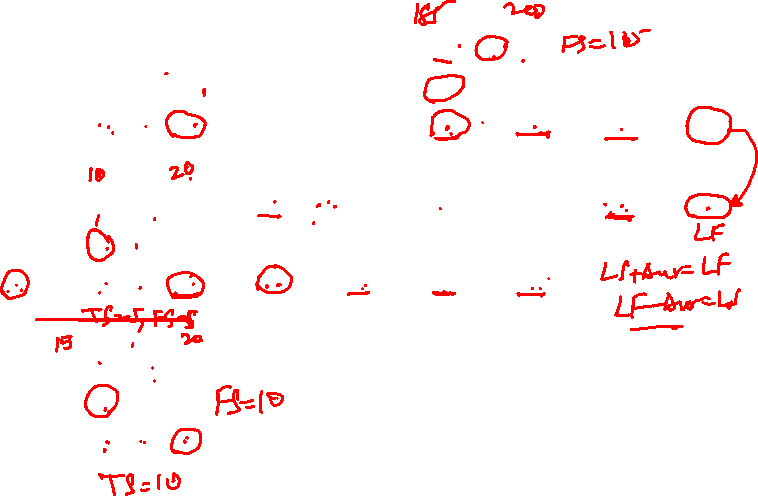 185 200
FS=185
10 20
LF
LS+Dur=LF
LF-Dur=LS
TS=5, FS=5
15 20
FS=10
TS=10